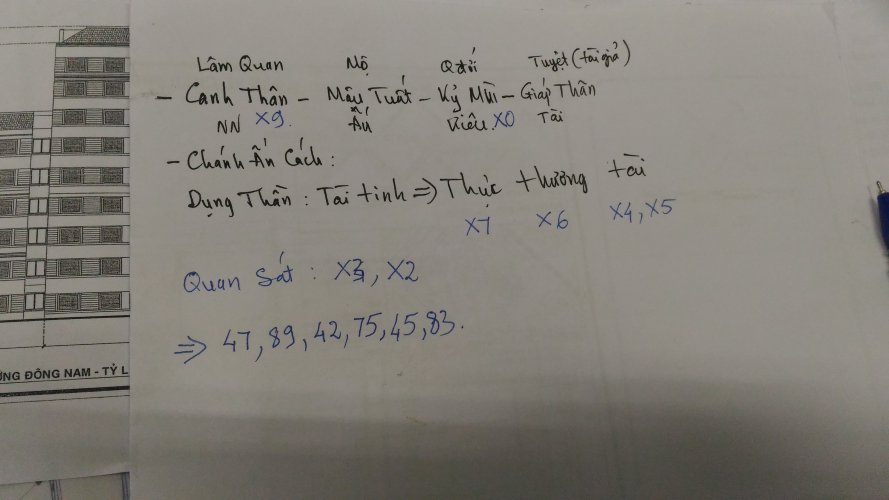 Lâm Quan Mộ Q đới Tuyệt (tài giả)
- Canh Thân - Mậu Tuất - Kỷ Mùi - Giáp Thân
NN X9. Ấn Kiêu. X0 Tài
- Chánh Ấn Cách:
Dụng Thần: Tài tinh => Thực thương tài
X7 X6 X4, X5
Quan Sát: X3, X2
=> 47, 89, 42, 75, 45, 83.
NG ĐÔNG NAM - TỶ L